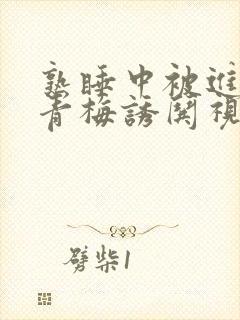 熟睡中被進
青梅誘関視
劈柴1